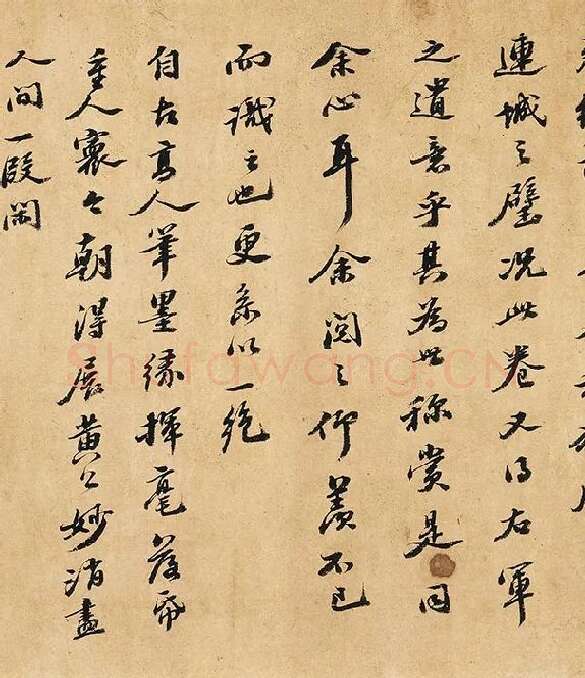 連城之璧況此卷又得右軍
之遺意乎其為世称賞是同
余心耳余閱之仰羨不已
而識之也更系以一絶
自古高人筆墨緣揮毫落帋
重人寰今朝得展黄公妙消盡
人間一段閑
Shufawang.CN